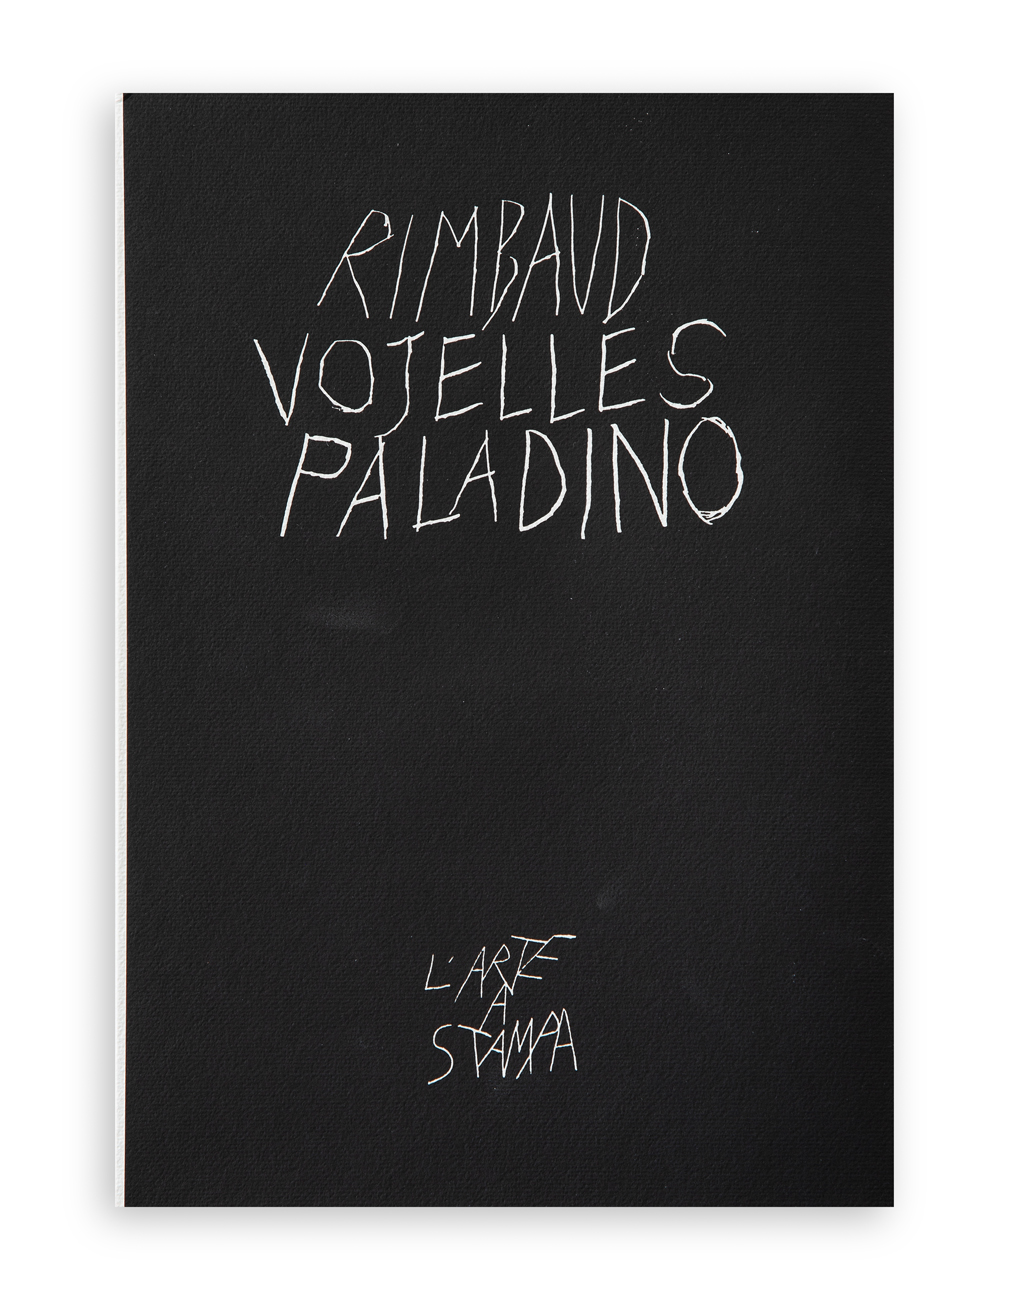 RIMBAUD
VOJELLES
PALADINO
L'ARTE
A
STAMPA